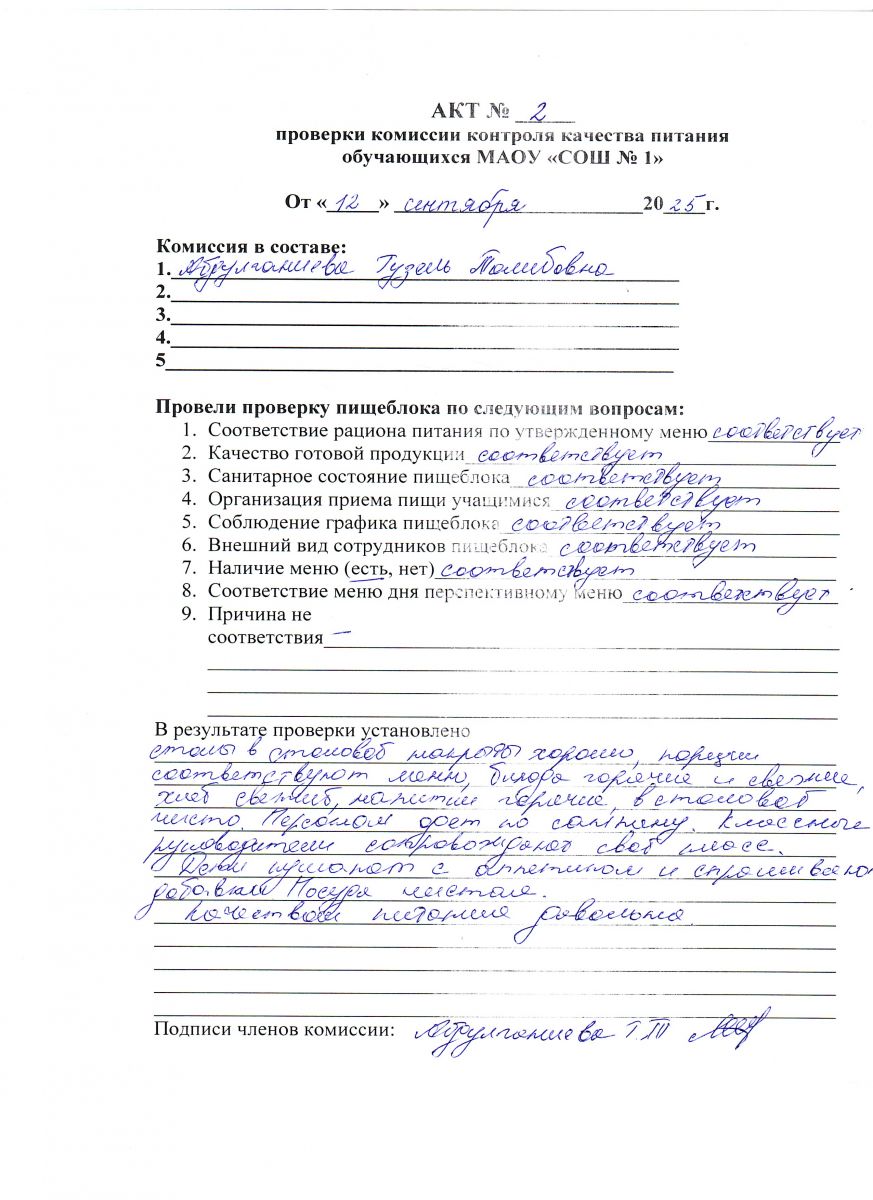 АКТ № 2
проверки комиссии контроля качества питания
обучающихся МАОУ «СОШ № 1»
От «12» сентября 2025 г.
Комиссия в составе:
1. Абдулганиева Гузель Талибовна
2.
3.
4.
5
Провели проверку пищеблока по следующим вопросам:
1. Соответствие рациона питания по утвержденному меню соответствует
2. Качество готовой продукции соответствует
3. Санитарное состояние пищеблока соответствует
4. Организация приема пищи учащимися соответствует
5. Соблюдение графика пищеблока соответствует
6. Внешний вид сотрудников пищеблока соответствует
7. Наличие меню (есть, нет) соответствует
8. Соответствие меню дня перспективному меню соответствует
9. Причина не
соответствия –
В результате проверки установлено
столы в столовой накрыты хорошо, порции
соответствуют меню, блюда горячие и свежие,
хлеб свежий, напитки горячие, в столовой
чисто. Персонал одет по сан. Классные
руководители сопровождают свой класс.
Дети кушают с аппетитом и спрашивают
добавки. Посуда чистая.
Качеством питания довольна.
Подписи членов комиссии: Абдулганиева Г.Т